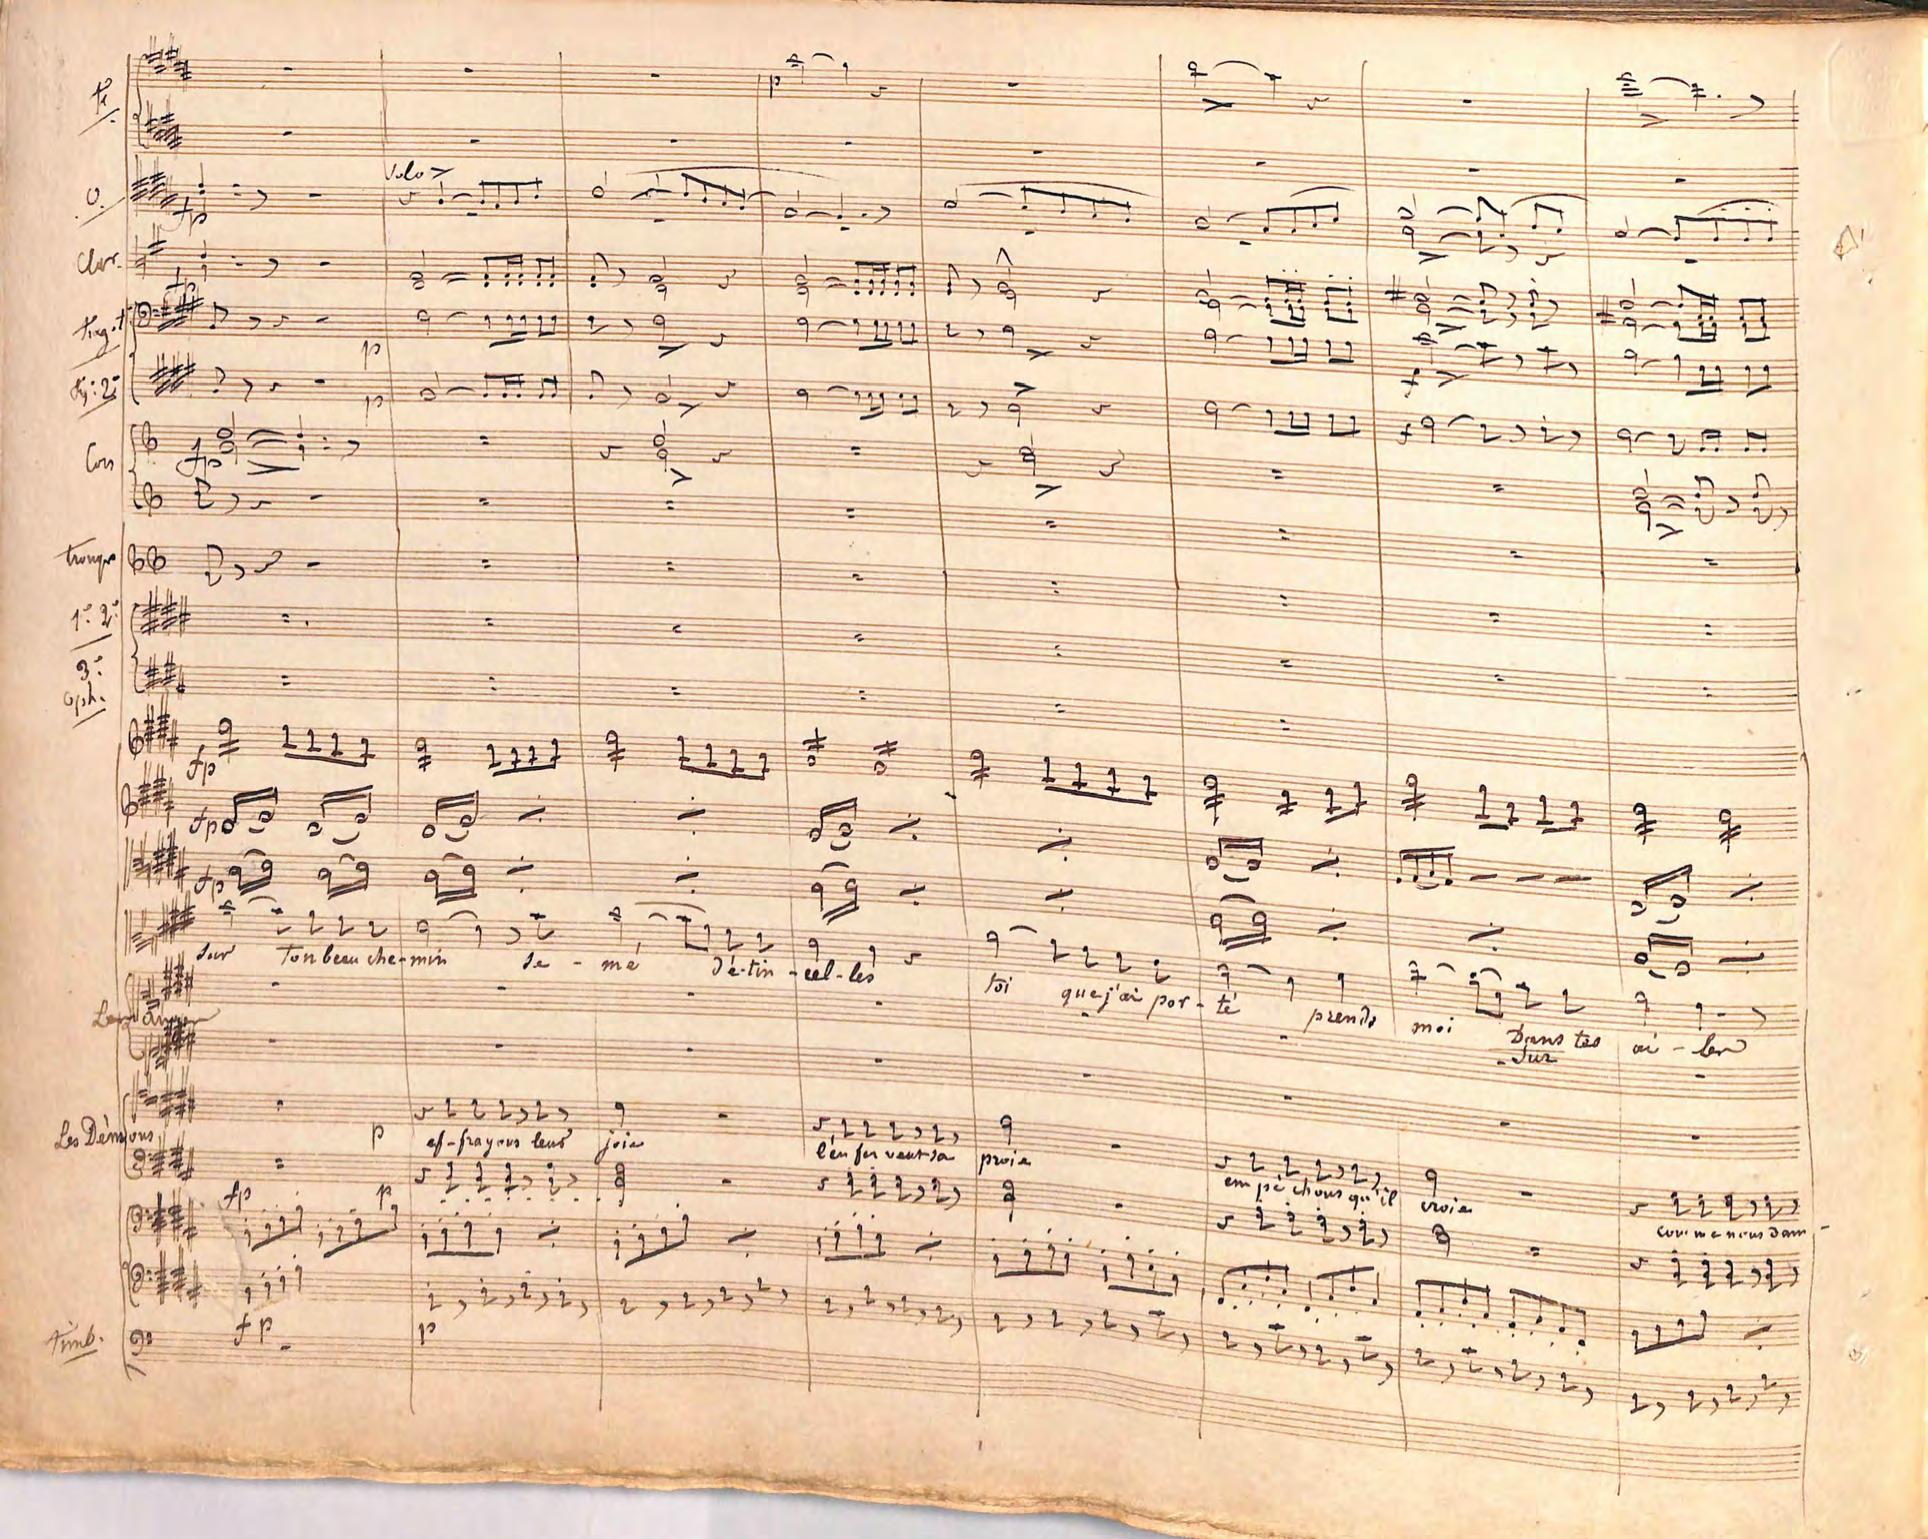 fl.
Solo
O.
fp
Clar.
fp
p
p
Cors
fp
Tromp
1º 2º
3º
oph.
fp
fp
fp
sur ton beau che-min se - mé d'é-tin-cel-les toi que j'ai por-té prends moi Dans tes ai - les
sur
Les Démons
p ef-frayons leur joie l'enfer veut sa proie em pê chons qu'il croie comme nous dam-
fp p
fp p
Timb.